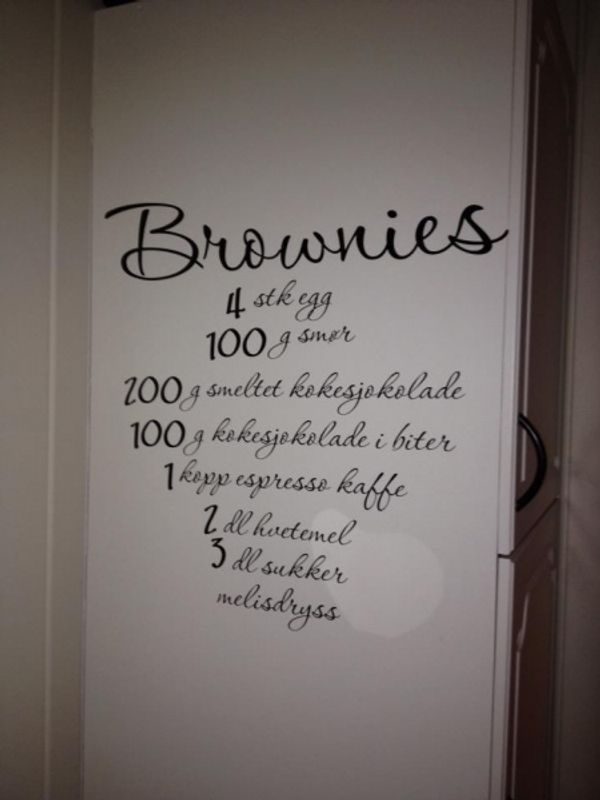 Brownies
4 stk egg
100 g smør
200 g smeltet kokesjokolade
100 g kokesjokolade i biter
1 kopp espresso kaffe
2 dl hvetemel
3 dl sukker
melisdryss